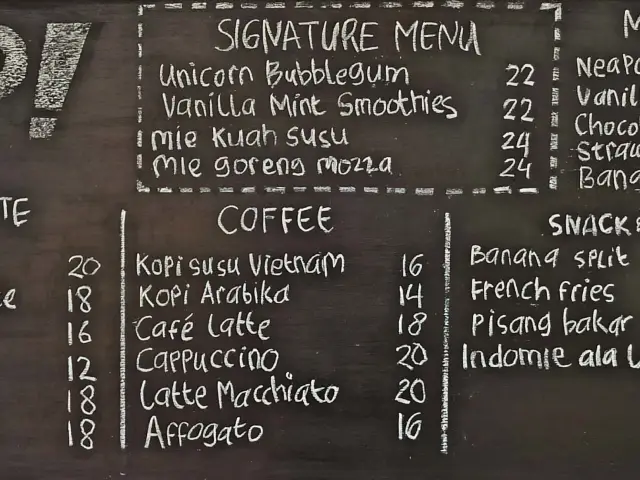 !
SIGNATURE MENU
Unicorn Bubblegum 22
Vanilla Mint Smoothies 22
mie kuah susu 24
mie goreng mozza 24
TE
20
18
16
12
18
18
COFFEE
Kopi susu Vietnam 16
Kopi Arabika 14
Café Latte 18
Cappuccino 20
Latte Macchiato 20
Affogato 16
SNACK
Banana split
French fries
Pisang bakar
Indomie ala